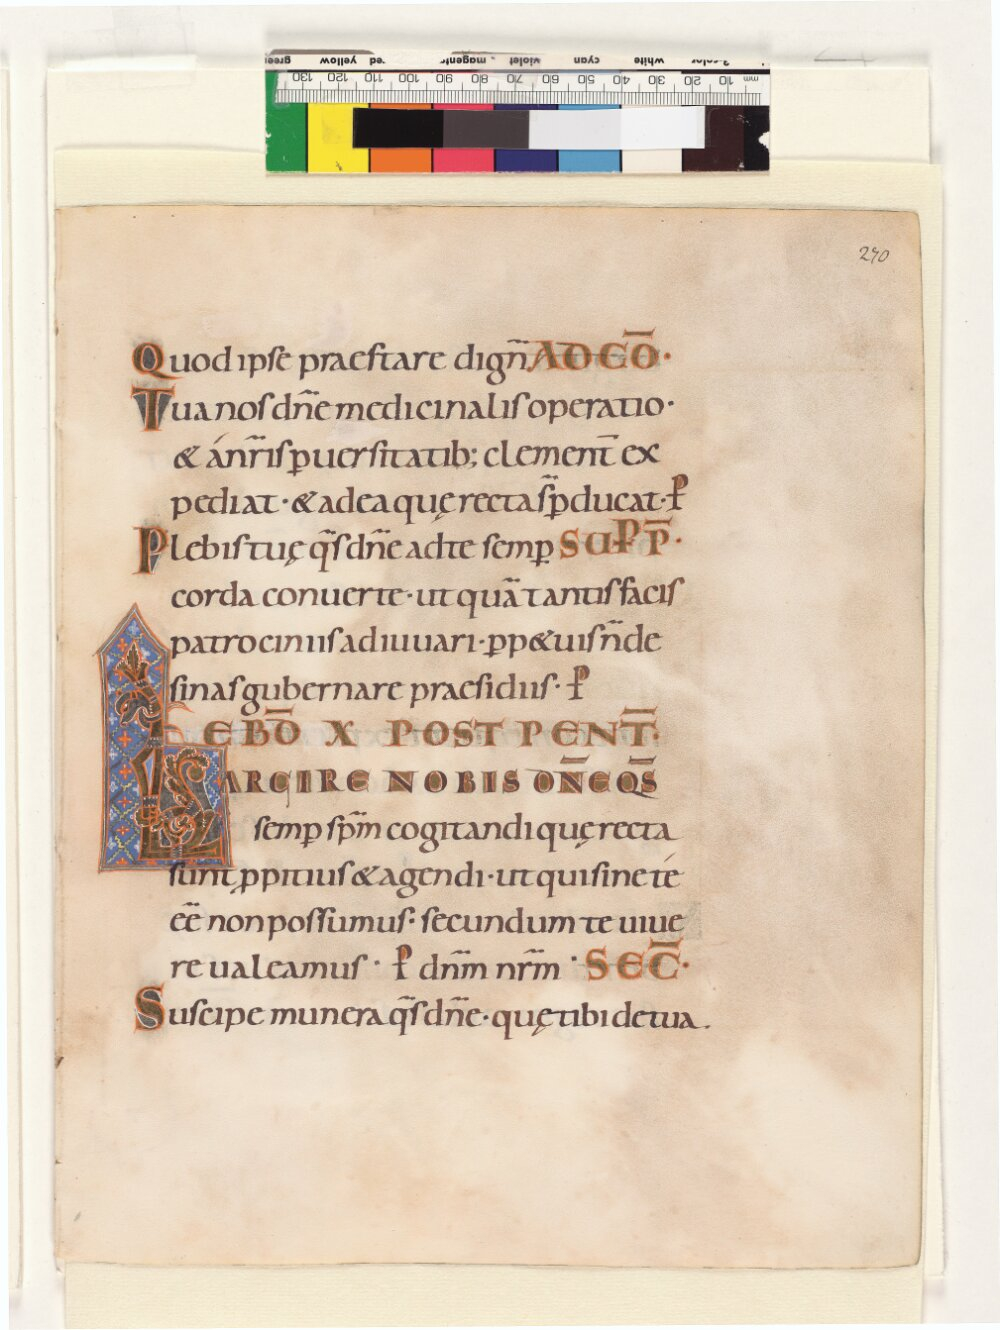 green yellow red magenta violet cyan white 3-color
130 120 110 100 90 80 70 60 50 40 30 20 10 mm
290
Quod ipse praestare dign̄ AD CŌ·
Tua nos dñe medicinalis operatio·
& á nr̄is puersitatib; clement̄ ex
pediat·& ad ea quę recta s̄ pducat·P
Plebis tuę q̄s dñe ad te semp SUPP̄·
corda conuerte·ut quā tantis facis
patrociniis adiuuari·pp&uis n̄ de
sinas gubernare praesidiis·P
EBD̄ X POST PENT̄·
LARGIRE NOBIS DN̄E QS̄
semp sp̄m cogitandi quę recta
sunt ppitius & agendi·ut qui sine té
eē non possumus· secundum te uiue
re ualeamus· P dn̄m nr̄m· SEC̄·
Suscipe munera q̄s dñe·quę tibi de tua.